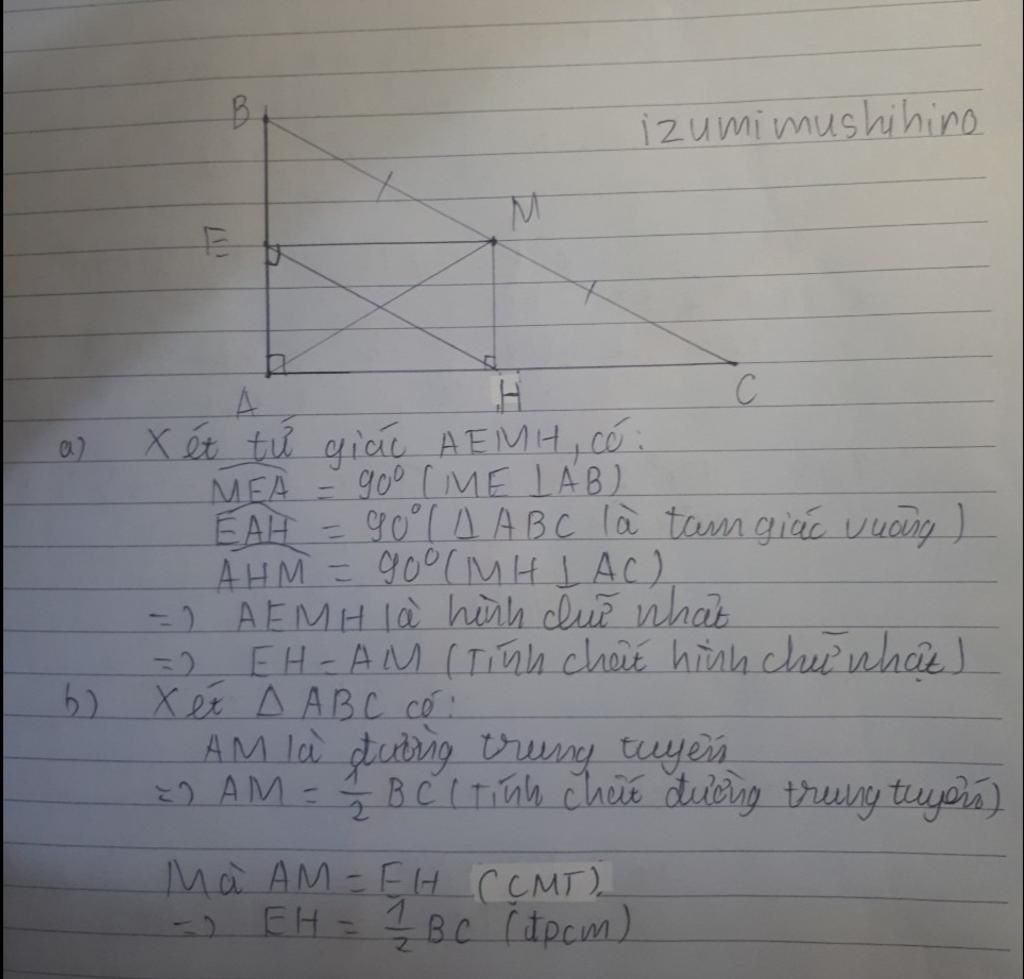 B
izumimushihino
M
E
A
H
C
a) Xét tứ giác AEMH, có:
MEA = 90⁰ (ME ⊥ AB)
EAH = 90⁰ (Δ ABC là tam giác vuông)
AHM = 90⁰ (MH ⊥ AC)
=> AEMH là hình chữ nhật
=> EH = AM (Tính chất hình chữ nhật)
b) Xét Δ ABC có:
AM là đường trung tuyến
=> AM = 1/2 BC (Tính chất đường trung tuyến)
Mà AM = EH (CMT).
=> EH = 1/2 BC (đpcm)